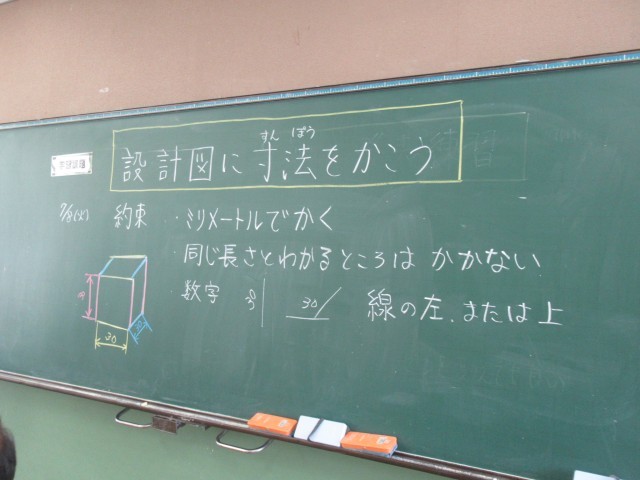 すんぽう
設計図に寸法をかこう
約束 ・ミリメートルでかく
同じ長さとわかるところは かかない
・数字 30 30 線の左、または上
20